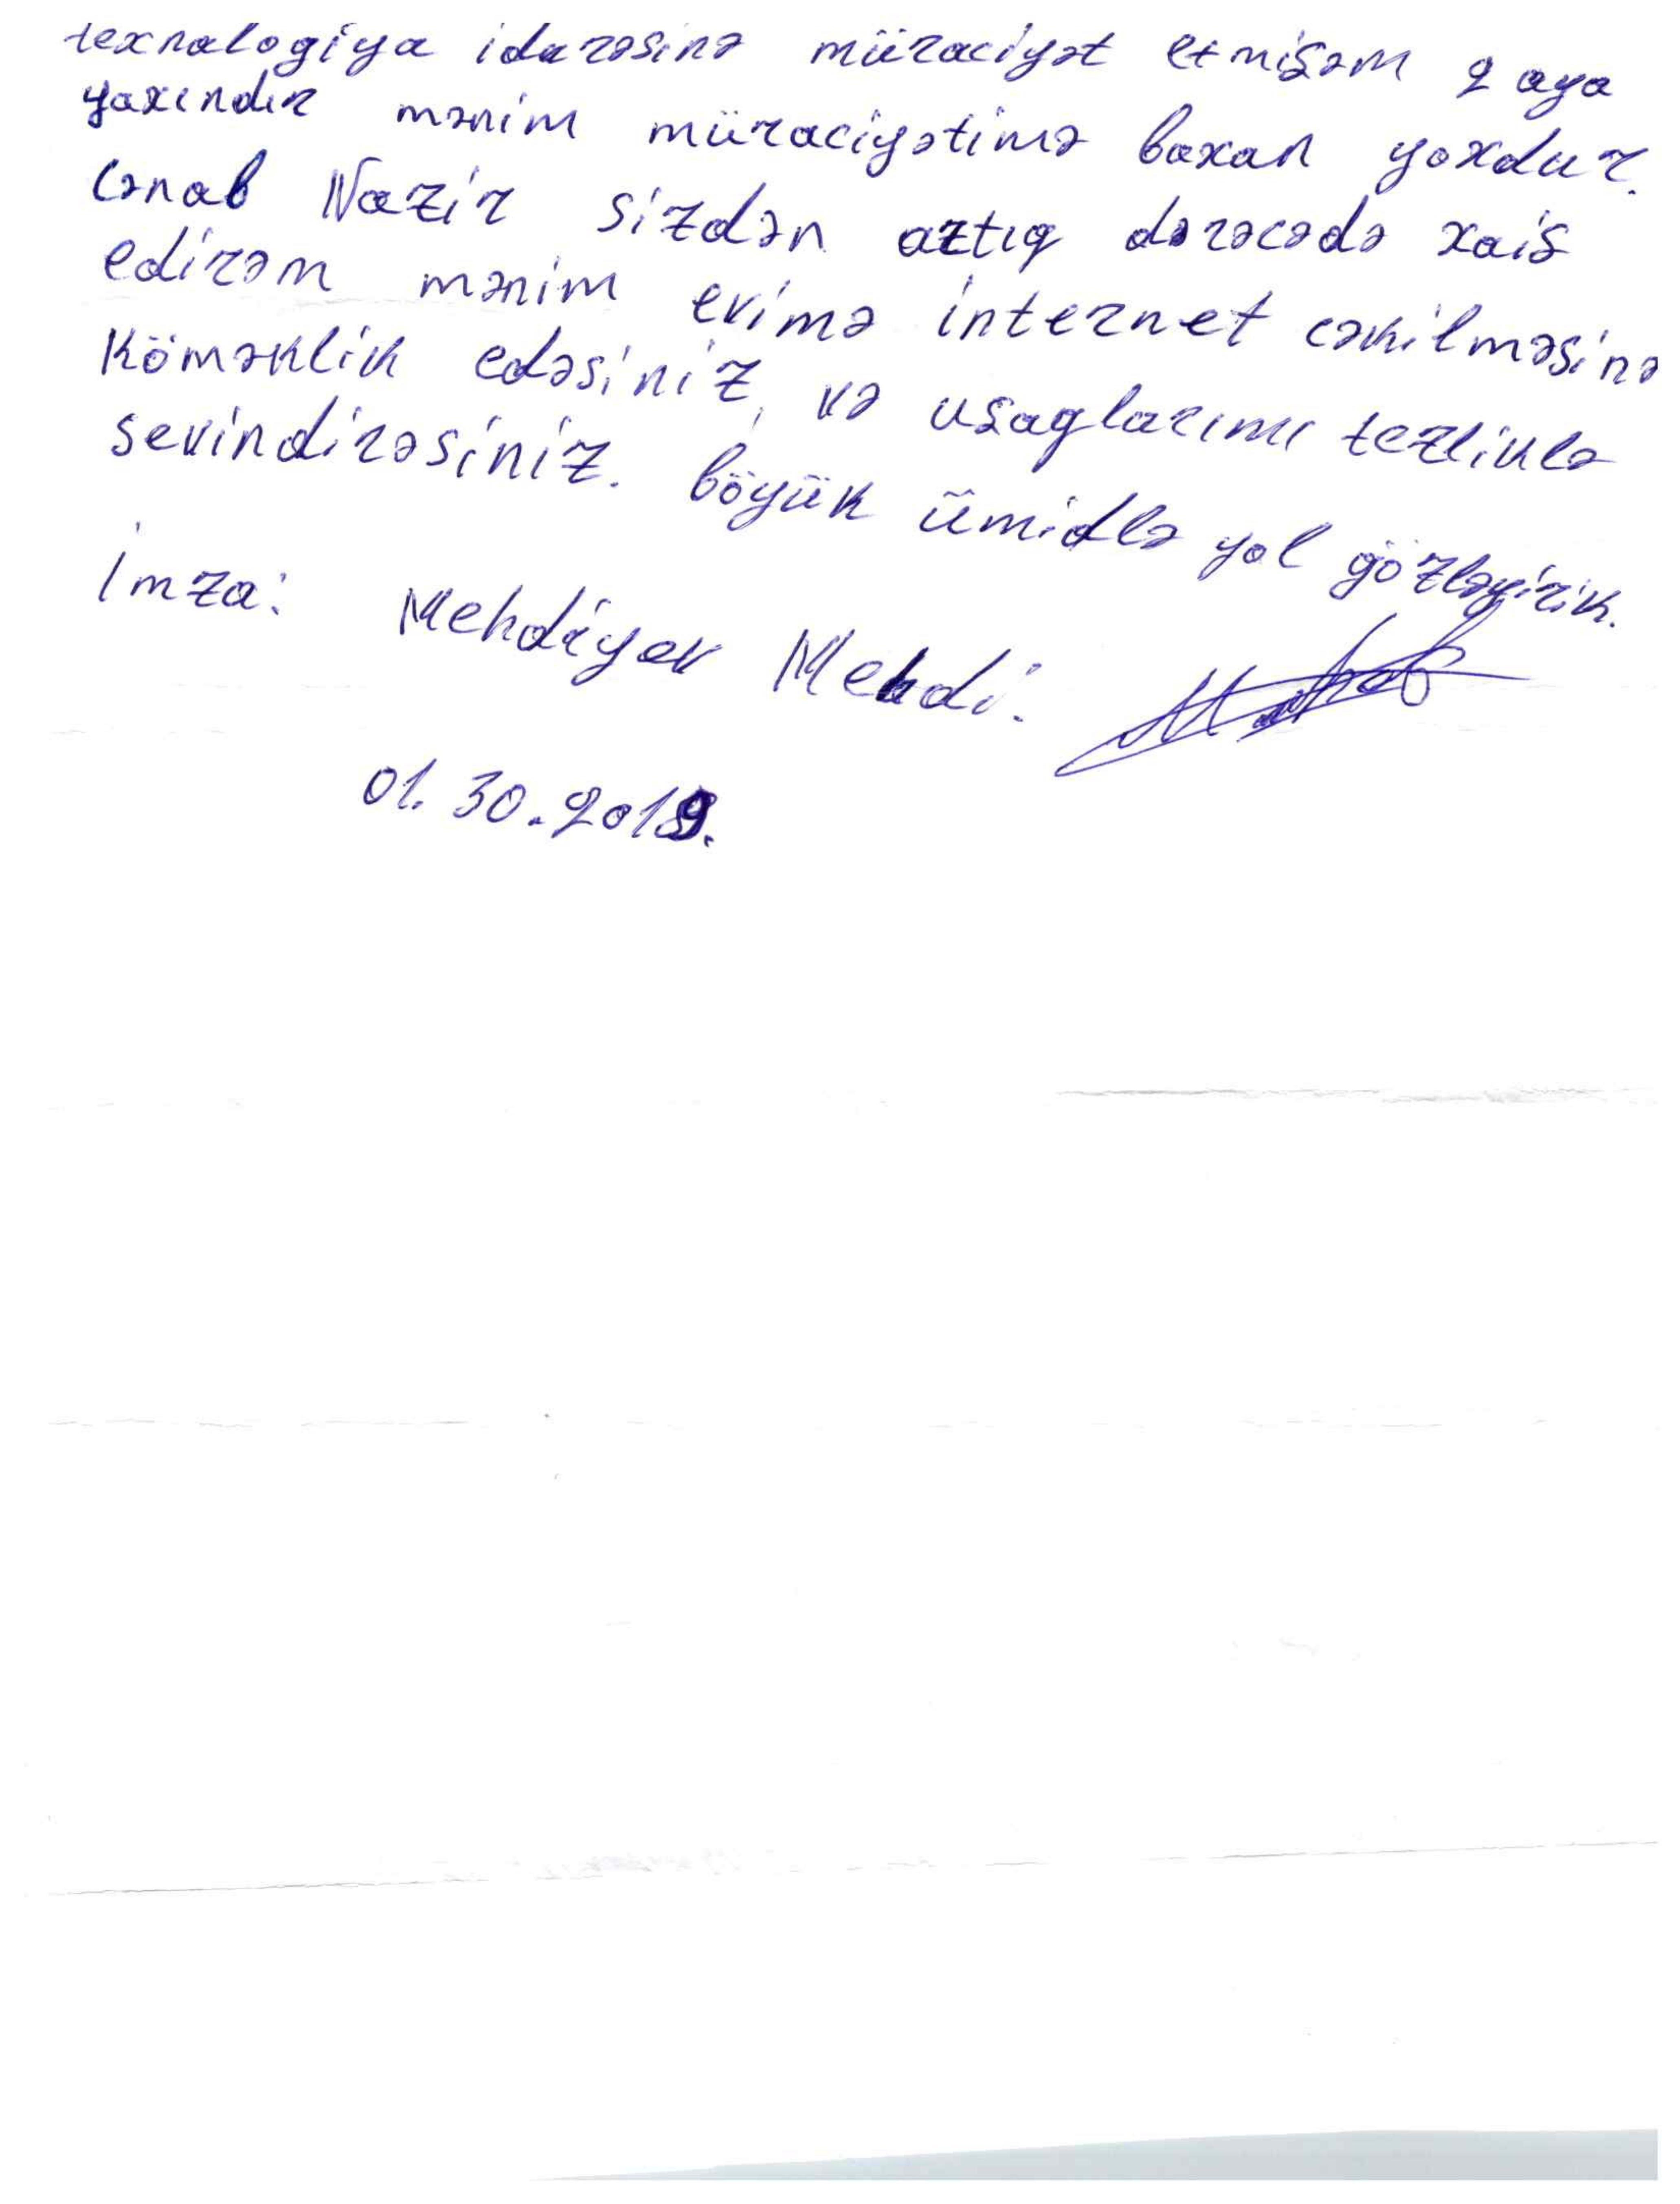 texnalogiya idarəsinə müraciyət etmişəm 2 aya
yaxındır mənim müraciyətimə baxan yoxdur.
Cənab Nazir sizdən artıq dərəcədə xaiş
edirəm mənim evimə internet cəkilməsinə
Köməklik edəsiniz, və uşaglarımı tezliklə
sevindirəsiniz. böyük ümidlə yol gözləyirik.
İmza: Mehdiyev Mehdi.
01.30.2019.